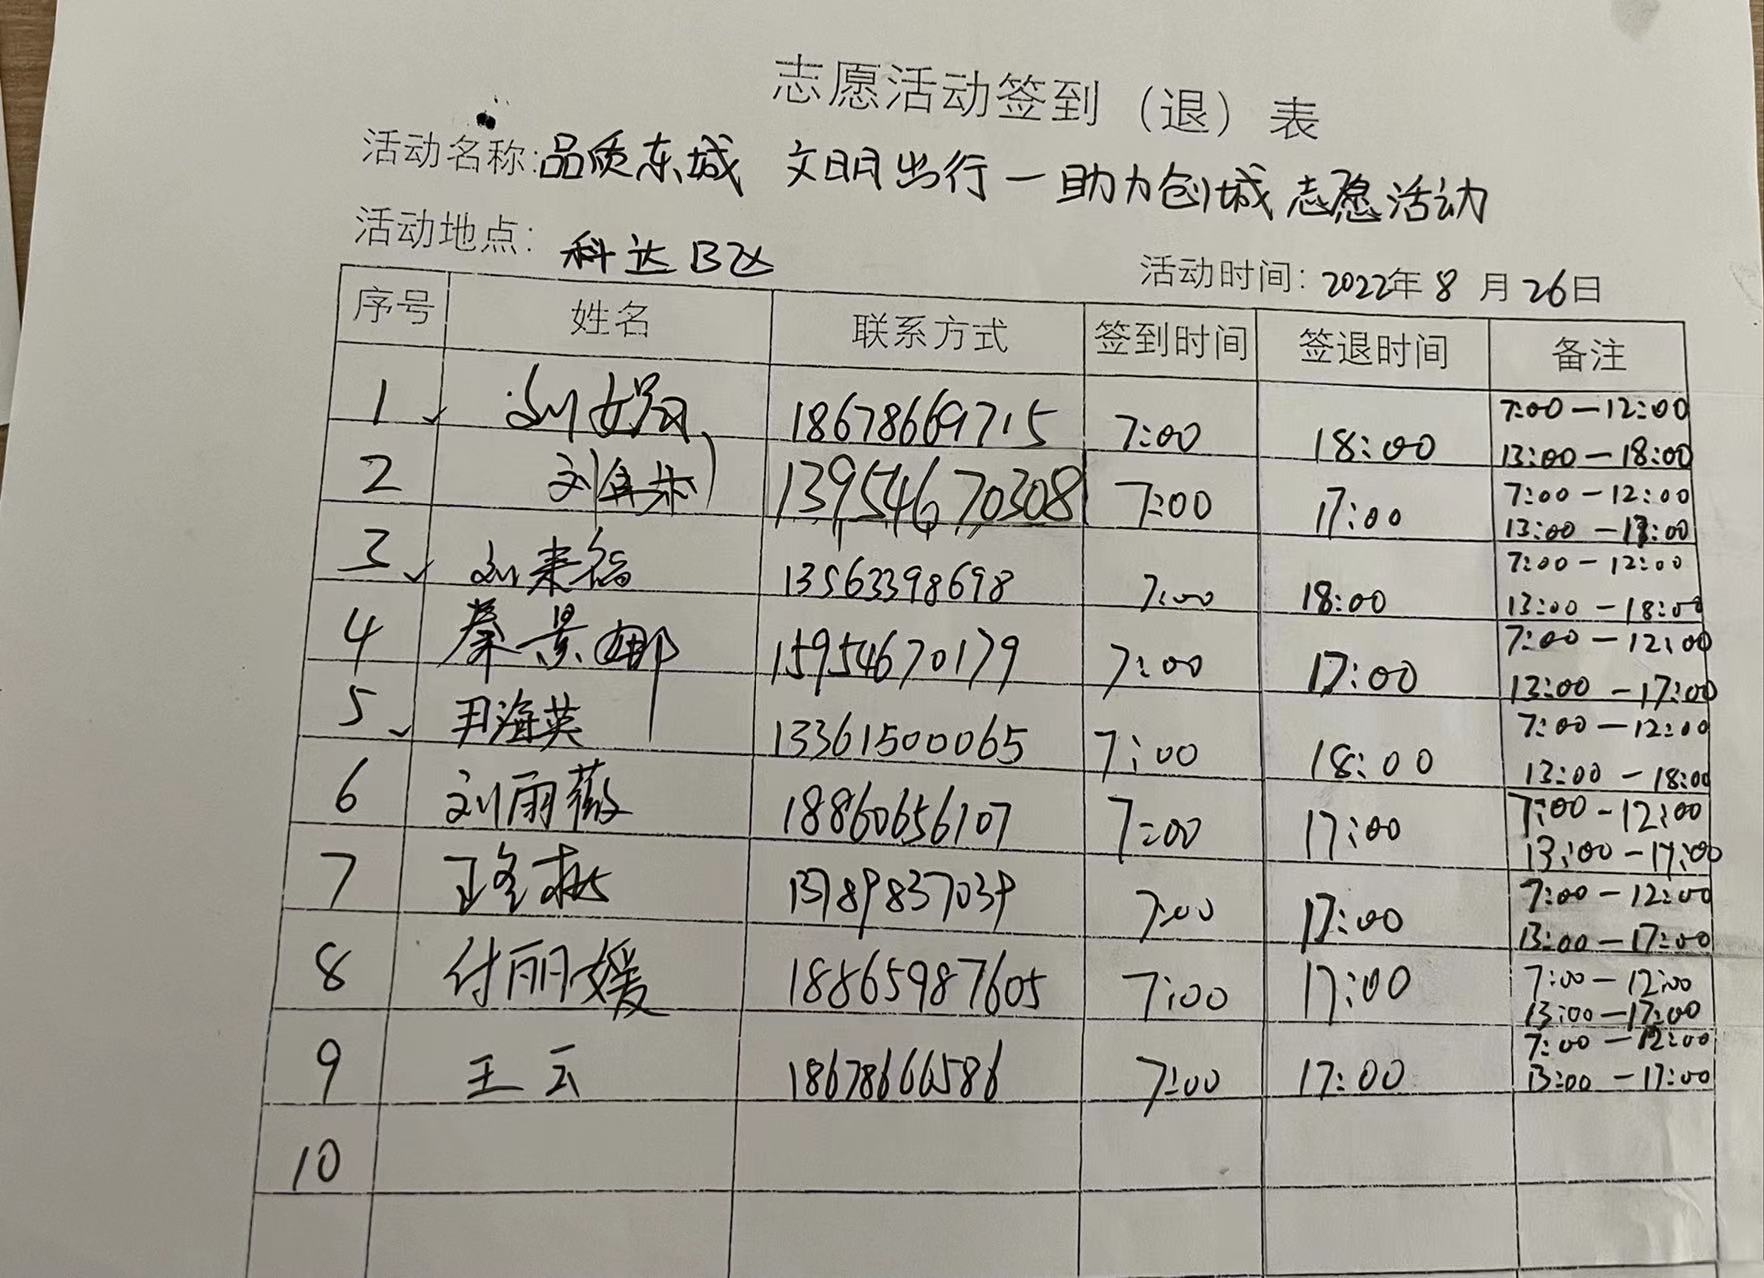 志愿活动签到（退）表
活动名称:品质东城 文明出行一助力创城志愿活动
活动地点: 科达B区
活动时间: 2022年8月26日
序号 姓名 联系方式 签到时间 签退时间 备注
1 ✓ 刘 18678669715 7:00 18:00 7:00—12:00
13:00—18:00
2 刘 13954670308 7:00 17:00 7:00—12:00
13:00—17:00
3 ✓ 刘来福 13563398698 7:00 18:00 7:00—12:00
13:00—18:00
4 秦景娜 15954670179 7:00 17:00 7:00—12:00
13:00—17:00
5 ✓ 尹海英 13361500065 7:00 18:00 7:00—12:00
13:00—18:00
6 刘丽薇 18860656107 7:00 17:00 7:00-12:00
13:00-17:00
7 13789837039 7:00 17:00 7:00—12:00
13:00—17:00
8 付丽媛 18865987605 7:00 17:00 7:00—12:00
13:00—17:00
9 王云 18678666586 7:00 17:00 7:00—12:00
13:00—17:00
10